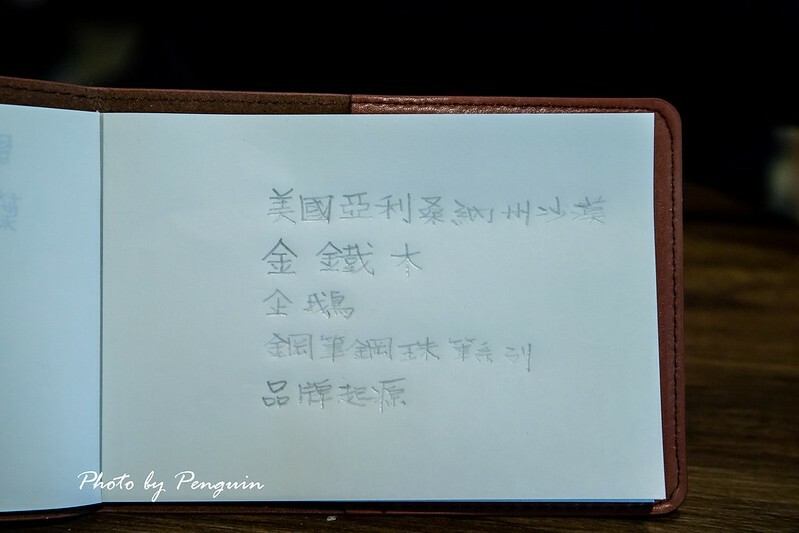 美國亞利桑納州沙漠
金 鐵 木
企鵝
鋼筆鋼珠筆系列
品牌起源
Photo by Penguin